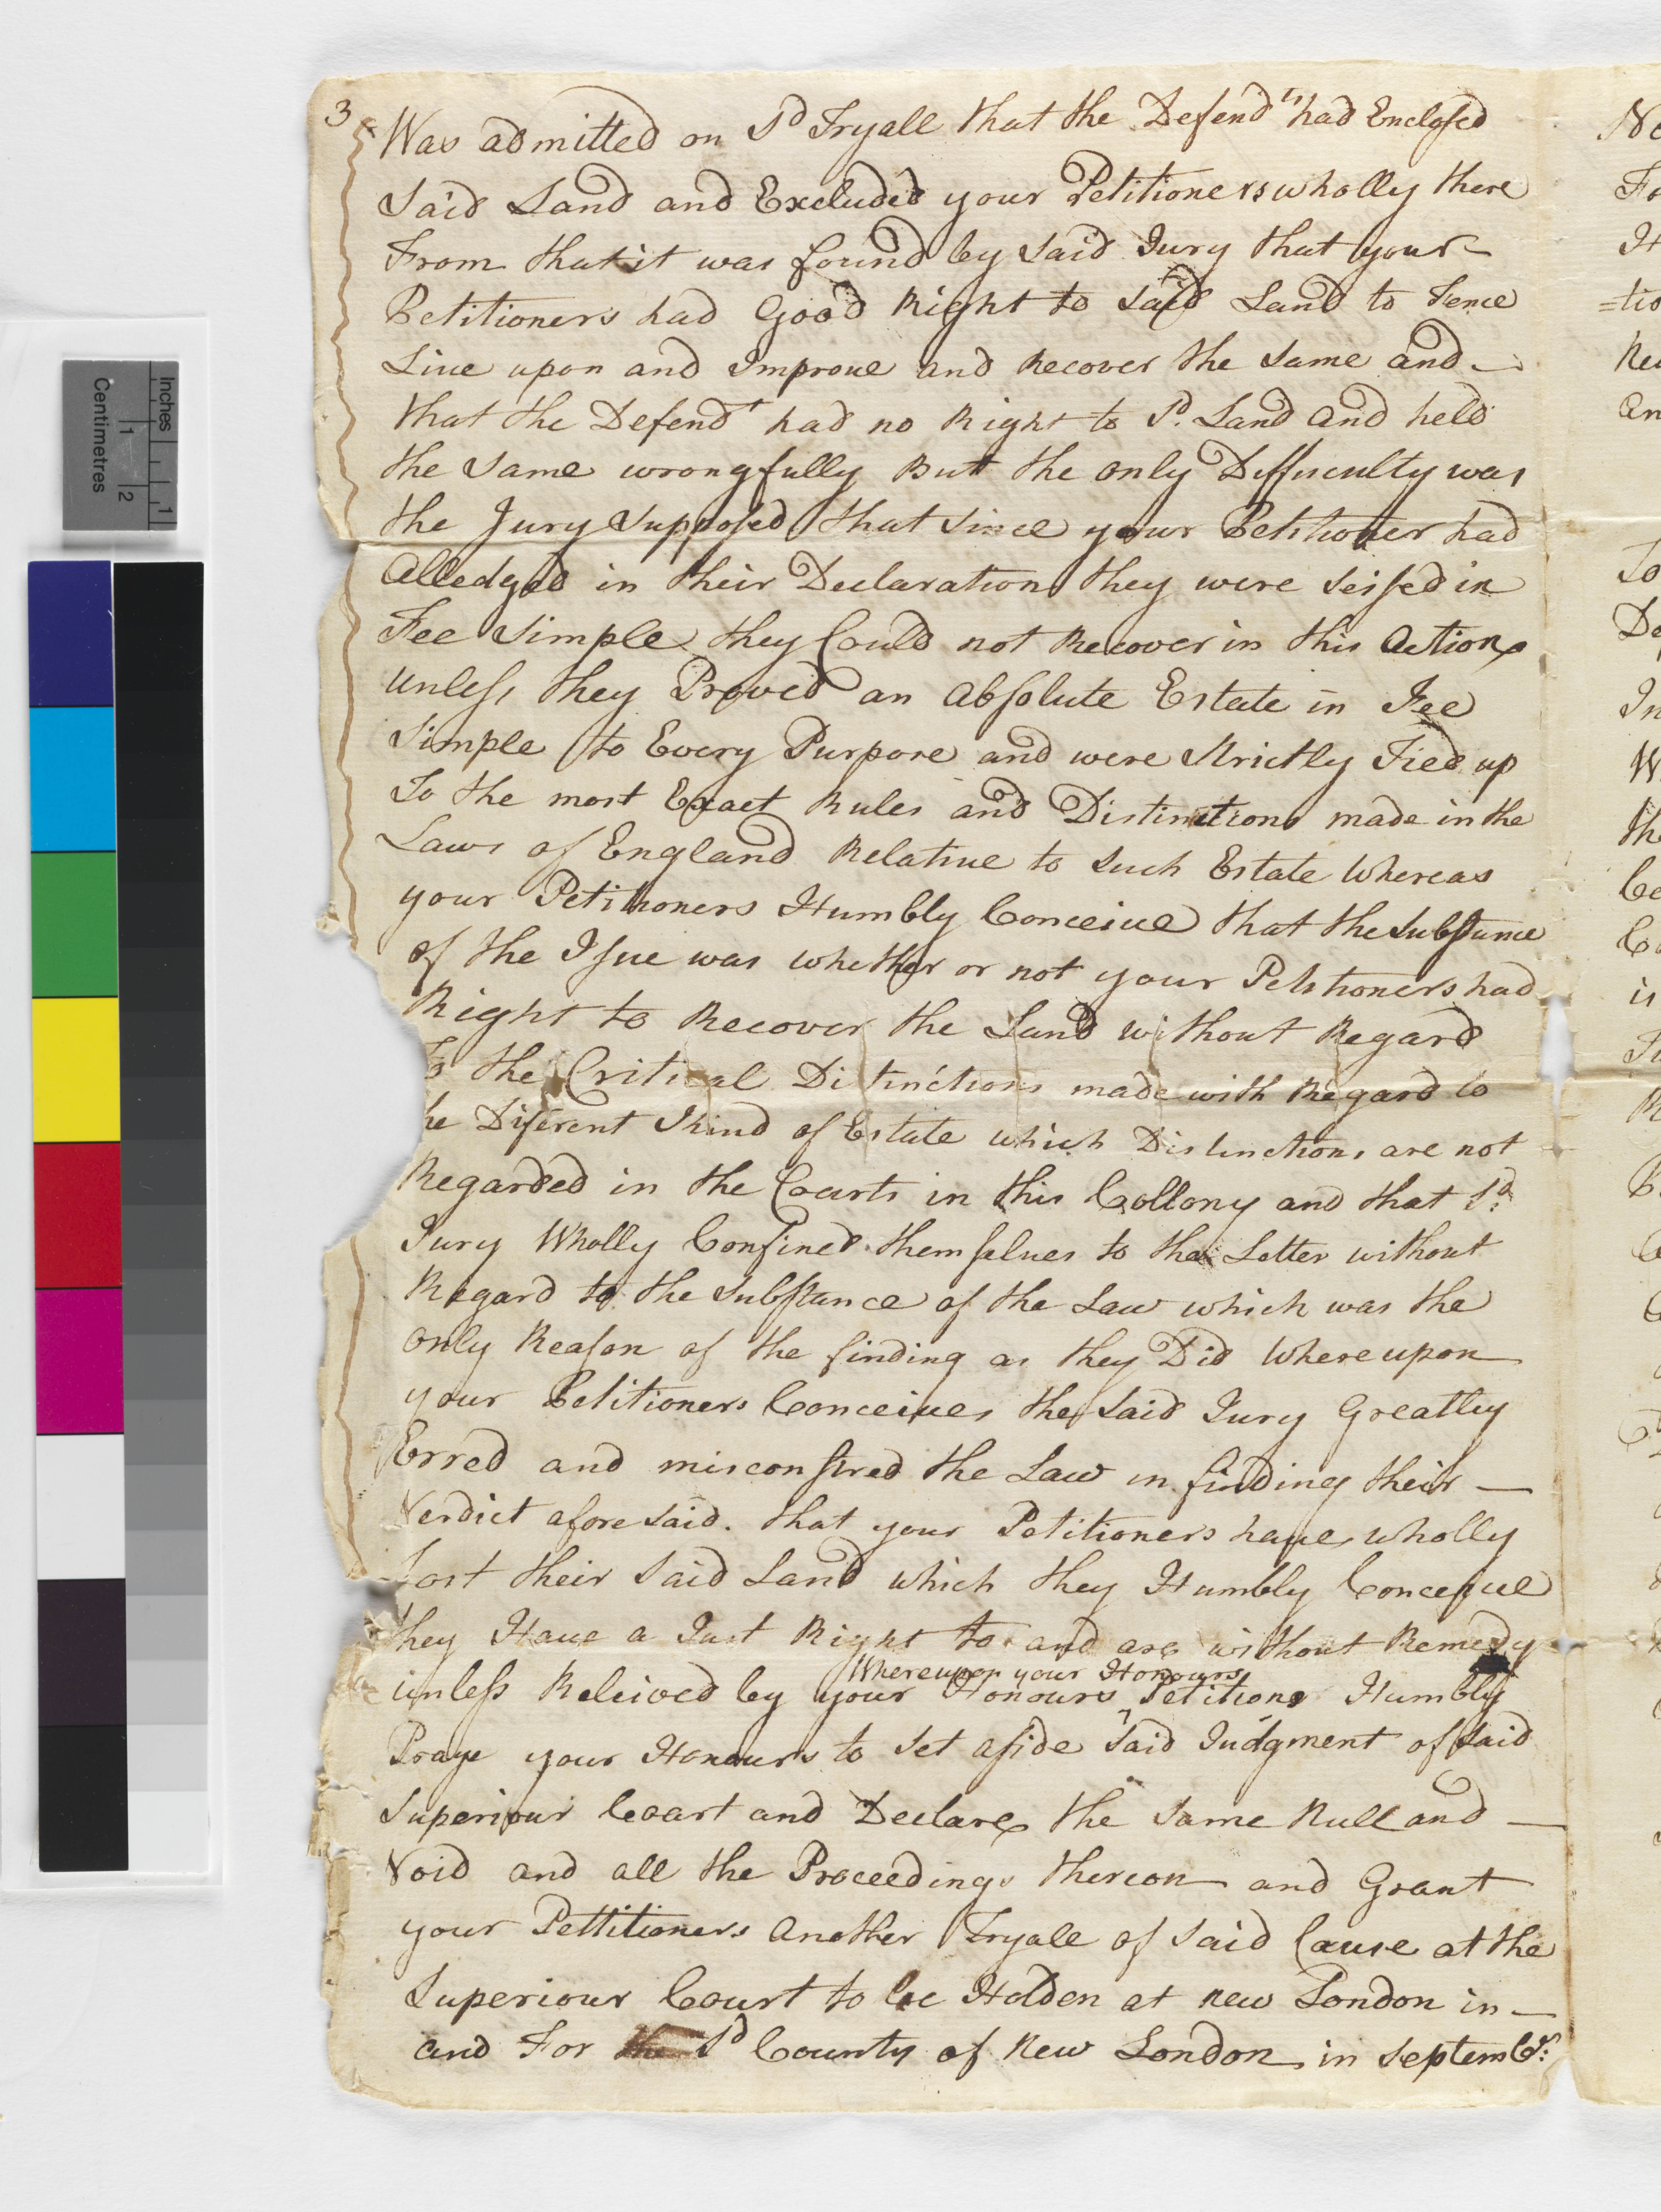 3
Was admitted on Sd Tryall that the Defendts had Enclosed
Said Land and Excluded your Petitioners wholly there
From that it was found by Said Jury that your
Petitioners had Good Right to Said Land to Fence
Live upon and Improue and Recover the Same and —
that the Defendt had no Right to Sd. Land and held
the Same wrongfully But the only Diffuculty was
the Jury Supposed that Since your Petitioner had
Alledged in their Declaration they were Seised in
Fee Simple they Could not Recover in this Action
Unless they Proved an Absolute Estate in Fee
Simple to Every Purpose and were Strictly Tied up
To the most Exact Rules and Distinctions made in the
Laws of England Relatiue to Such Estate Whereas
your Petitioners Humbly Conceiue that the Substance
of the Issue was whether or not your Petitioners had
Right to Recover the Land without Regard
To the Critical Distinctions made with Regard to
he Diferent Kind of Estate which Distinctions are not
Regarded in the Courts in this Collony and that Sd:
Jury Wholly Confined themselues to the Letter without
Regard to the Substance of the Law which was the
only Reason of the finding as they Did Whereupon
your Petitioners Conceiues the Said Jury Greatley
Erred and misconstred the Law in finding their —
Verdict aforesaid. that your Petitioners haue wholly
Lost their Said Land which they Humbly Conceiue
they Haue a Just Right to and are without Remedy
Whereupon your Honours
unless Releived by your Honours ‸ Petitions Humbly
Praye your Honours to Set aside Said Judgment of Said
Superiour Coart and Declare the Same Null and —
Void and all the Proceedings thereon and Grant
your Pettitioners Another Tryall of Said Cause at the
Superiour Court to be Holden at new London in —
and For the Sd County of New London in Septembr:
Inches
1
Centimetres
1
2